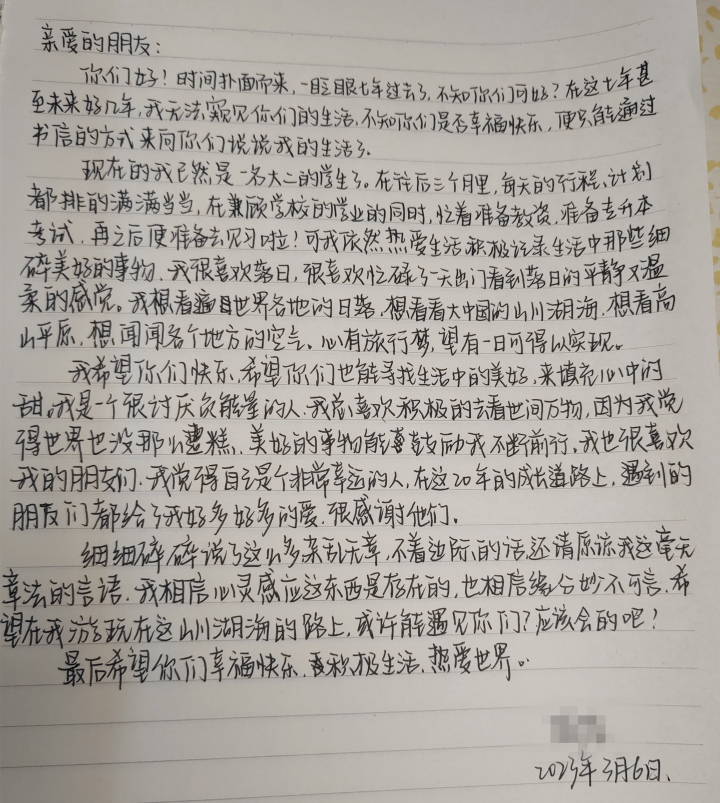 亲爱的朋友：
你们好！时间扑面而来，一眨眼七年过去了，不知你们可好？在这七年甚
至未来好几年，我无法窥见你们的生活，不知你们是否幸福快乐，便只能通过
书信的方式来向你们说说我的生活了。
现在的我已然是一名大二的学生了。在往后三个月里，每天的行程、计划
都排的满满当当，在兼顾学校的学业的同时，忙着准备教资，准备专升本
考试，再之后便准备去见习啦！可我依然热爱生活积极记录生活中那些细
碎美好的事物。我很喜欢落日，很喜欢忙碌了一天出门看到落日的平静又温
柔的感觉。我想看遍世界各地的日落，想看看大中国的山川湖海，想看高
山平原，想闻闻各个地方的空气。心有旅行梦，望有一日可得以实现。
我希望你们快乐，希望你们也能寻找生活中的美好，来填充心中的
甜。我是一个很讨厌负能量的人，我总喜欢积极的去看世间万物，因为我觉
得世界也没那么遭糕，美好的事物能鼓励我不断前行。我也很喜欢
我的朋友们，我觉得自己是个非常幸运的人，在这20年的成长道路上，遇到的
朋友们都给了我好多好多的爱，很感谢他们。
细细碎碎说了这么多杂乱无章，不着边际的话，还请原谅我这毫无
章法的言语。我相信心灵感应这东西是存在的，也相信缘分妙不可言。希
望在我游玩在这山川湖海的路上，或许能遇见你们？应该会的吧！
最后希望你们幸福快乐，积极生活，热爱世界。
2023年3月6日、